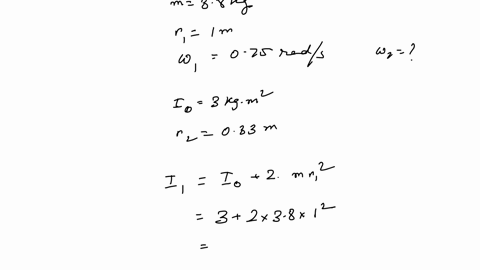 m = 3.8 kg
r₁ = 1 m
ω₁ = 0.75 rad/s ω₂ = ?
I₀ = 3 kg.m²
r₂ = 0.33 m
I₁ = I₀ + 2. m r₁²
= 3 + 2 × 3.8 × 1²
=